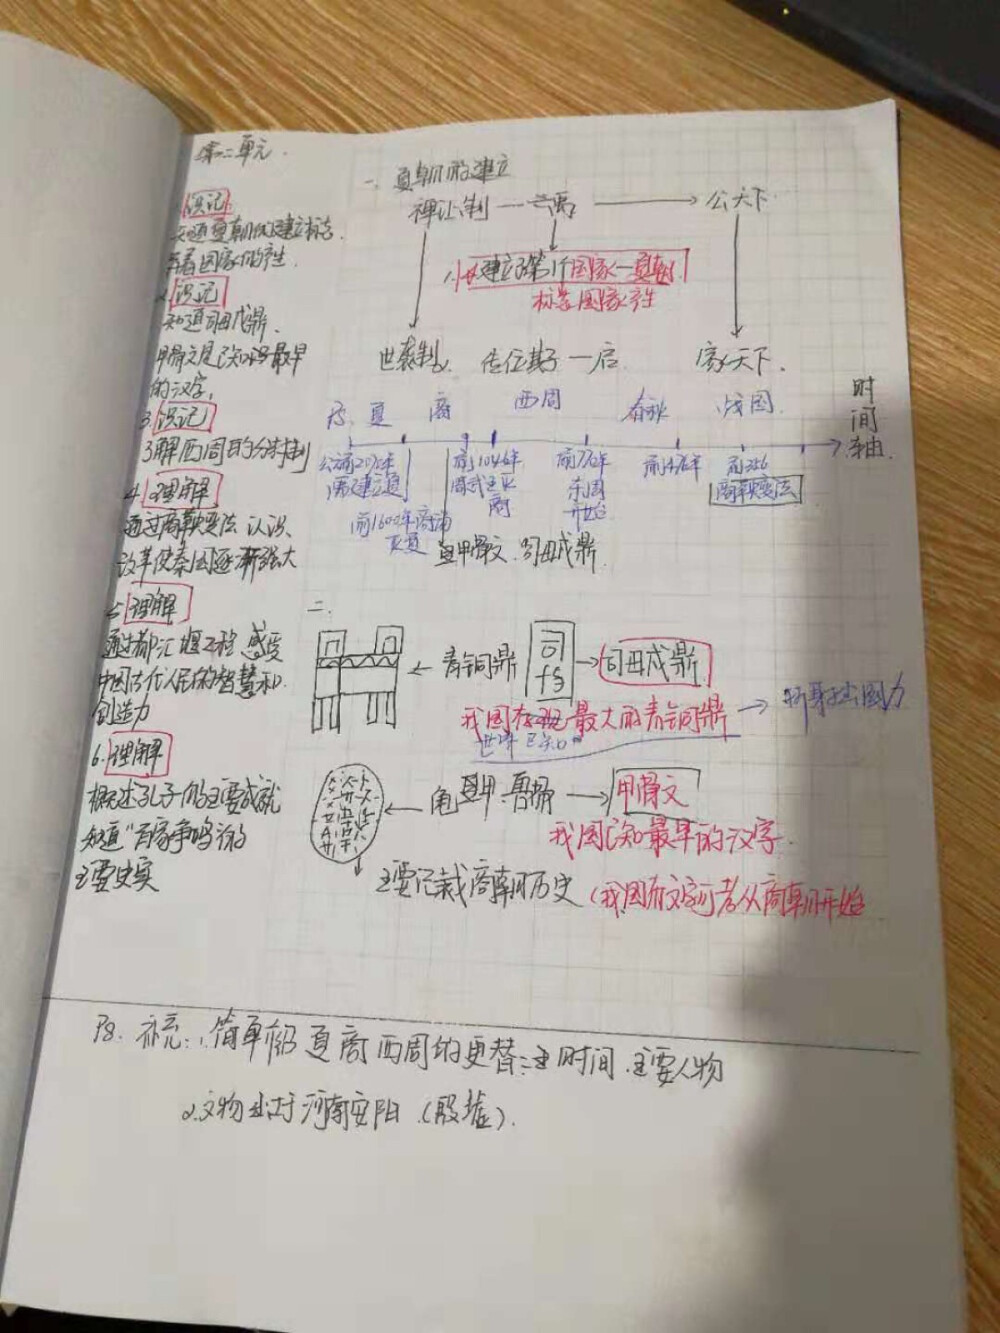 第二单元.
1.识记
知道夏朝的建立标志
着国家的产生.
2.识记
知道司母戊鼎.
甲骨文是已知的最早
的汉字.
3.识记
了解西周的分封制
4.理解
通过商鞅变法认识
改革使秦国逐渐强大
5.理解
通过都江堰工程感受
中国古代人民的智慧和
创造力
6.理解
概述孔子的主要成就
知道"百家争鸣"的
主要史实
一、夏朝的建立
禅让制 — 禹 → 公天下
1. 建立了第1个国家—夏朝
标志国家产生
世袭制. 传位其子—启 家天下.
夏 商 西周 春秋 战国 时间轴
公元前2070年
禹建立夏
前1600年商汤
灭夏
前1046年
周武王灭
商
前770年
东周
开始
前476年
前356
商鞅变法
甲骨文.司母戊鼎.
二.
← 青铜鼎 司 → 司母戊鼎
我国 最大的青铜鼎
世界已知
← 龟甲.兽骨 → 甲骨文
我国已知最早的汉字.
主要记载商朝历史 (我国有文字可考从商朝开始
PS. 补充: 1.简单 夏商西周的更替: 时间.主要人物
2.文物出于河南安阳.(殷墟).